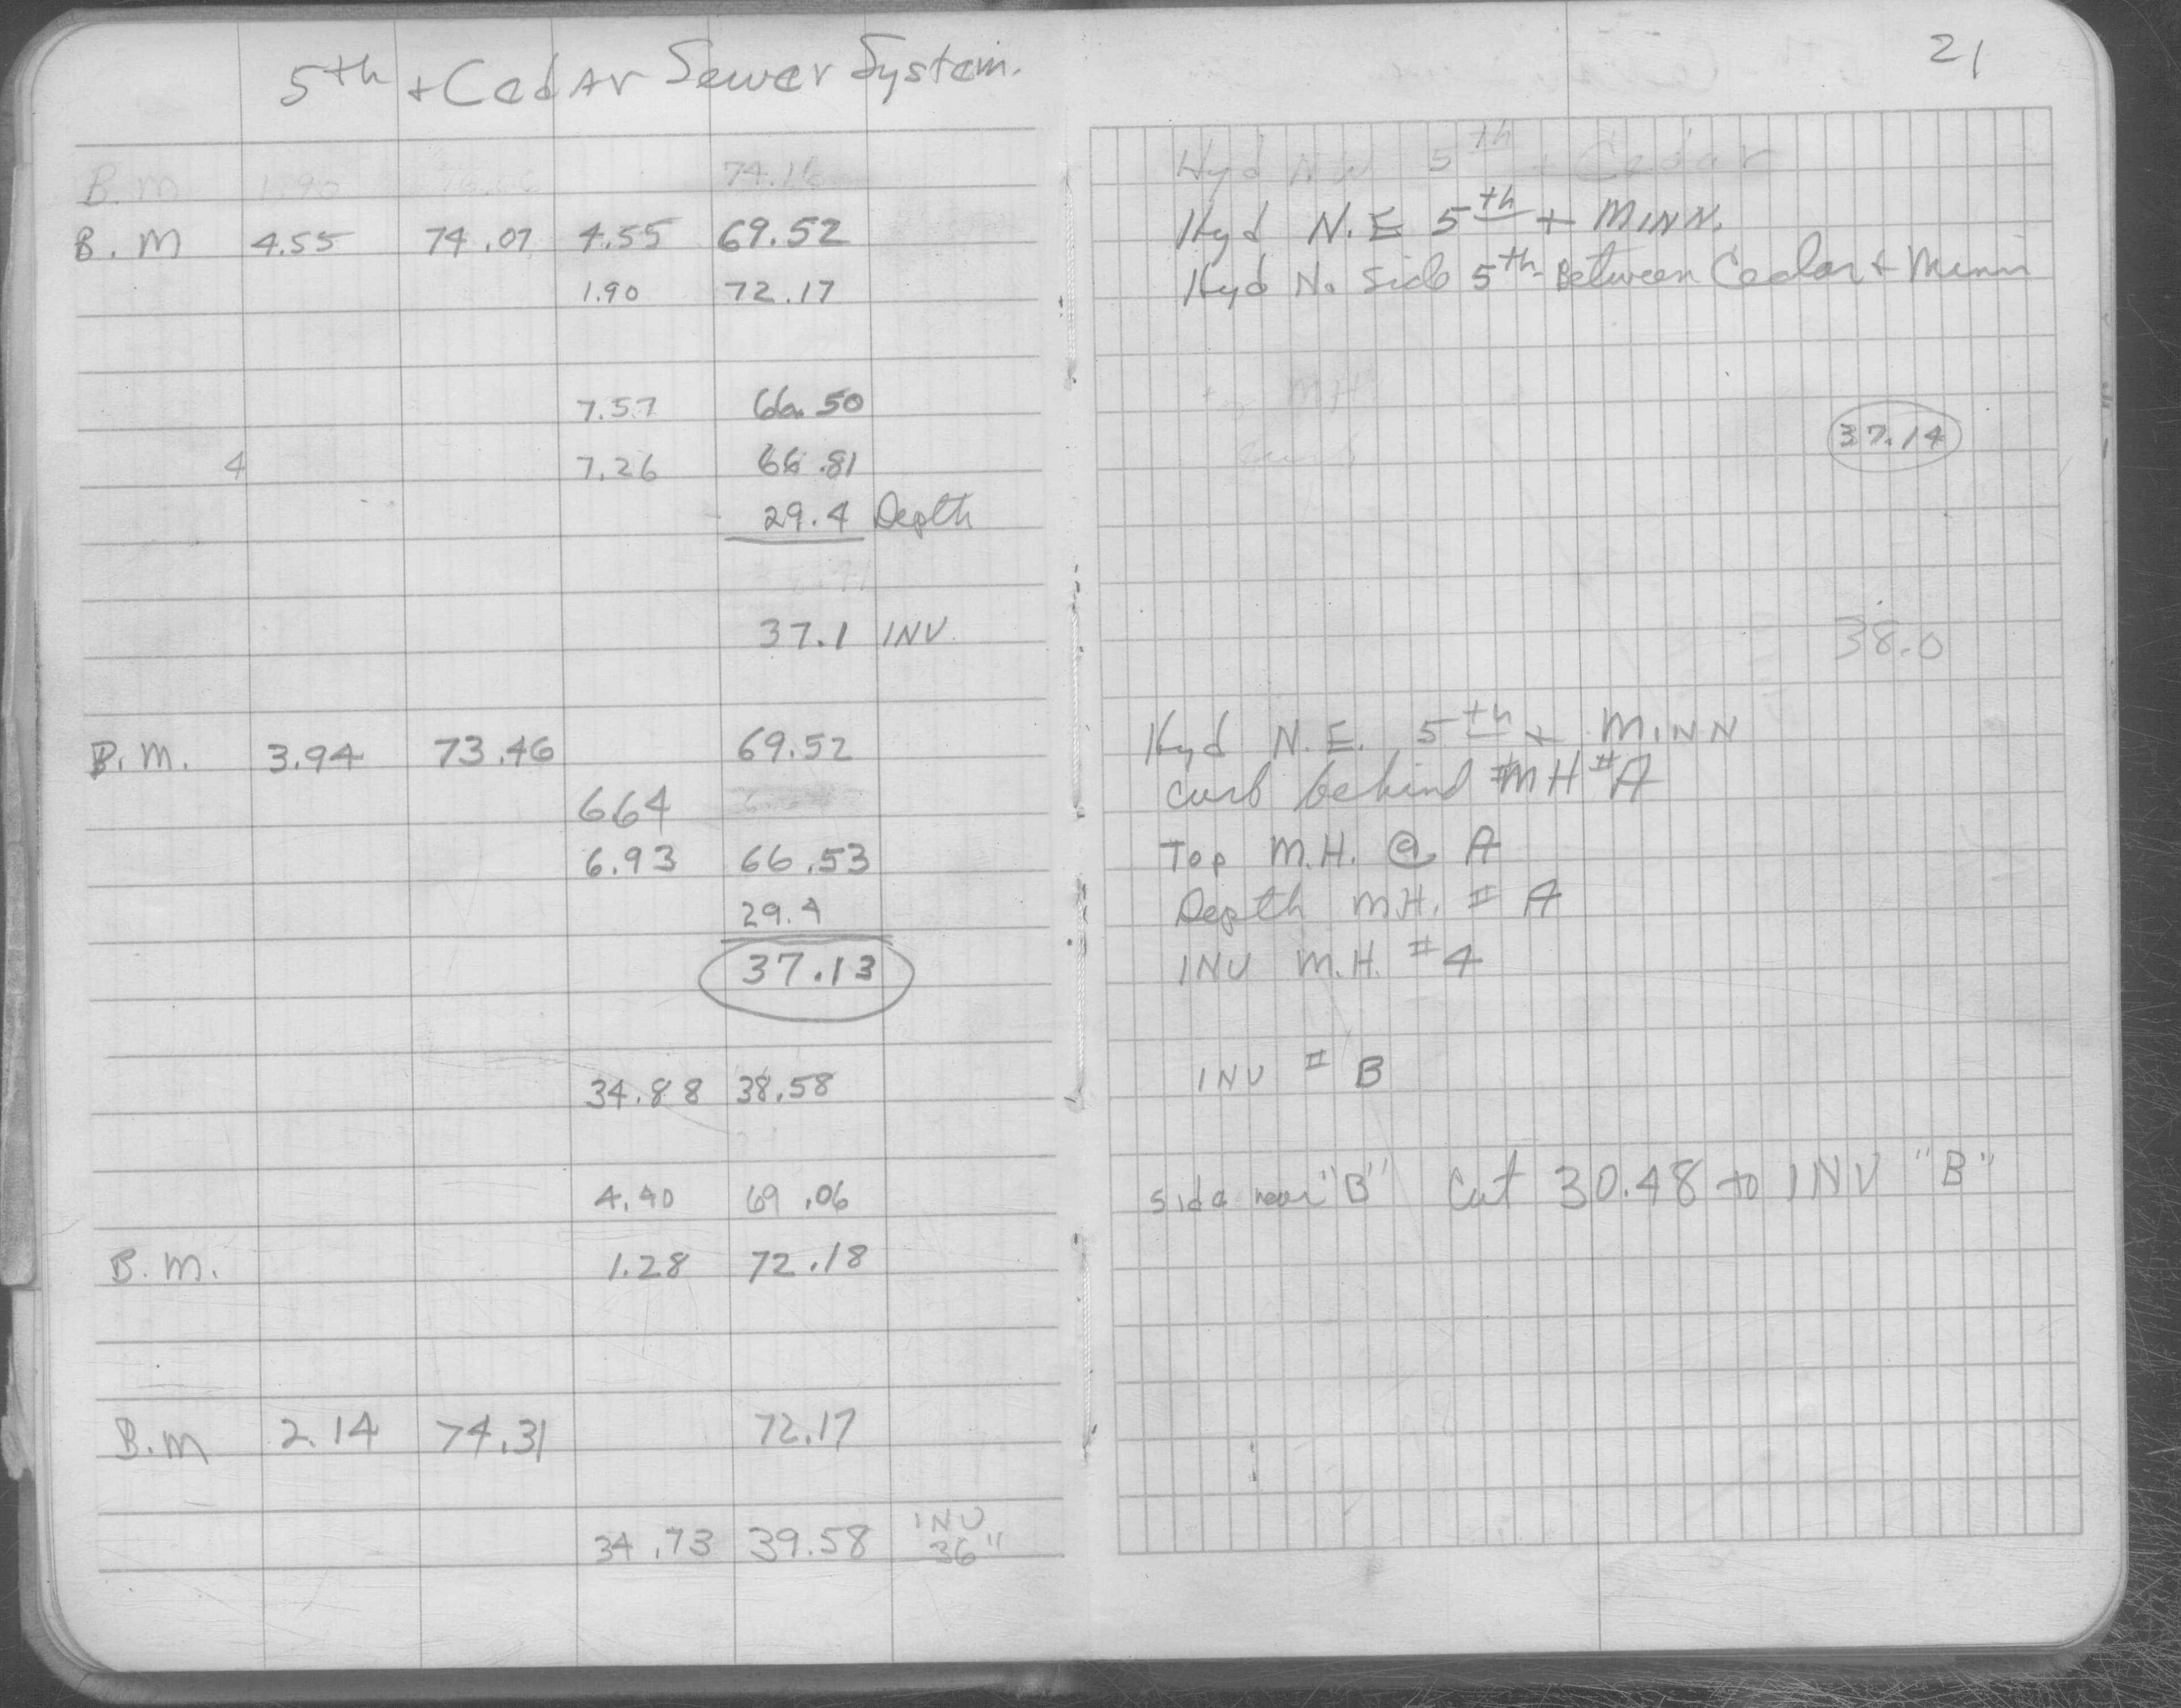 5th + Cedar Sewer System.
21
B.M 1.90 74.16 Hyd NW 5th + Cedar
B.M 4.55 74.07 4.55 69.52 Hyd N.E 5th + MINN.
1.90 72.17 Hyd No Side 5th Between Cedar + Minn
7.57 66.50 top MH
37.14
4 7.26 66.81 curb
29.4 Depth
37.1 INV 38.0
B.M. 3.94 73.46 69.52 Hyd N.E. 5th + MINN
6.64 curb behind MH #A
6.93 66.53 Top M.H. @ A
29.4 Depth MH. # A
37.13 INV M.H. #4
34.88 38.58 INV # B
4.40 69.06 Side near "B" Cut 30.48 to INV "B"
B.M. 1.28 72.18
B.M 2.14 74.31 72.17
34.73 39.58 INV 36"